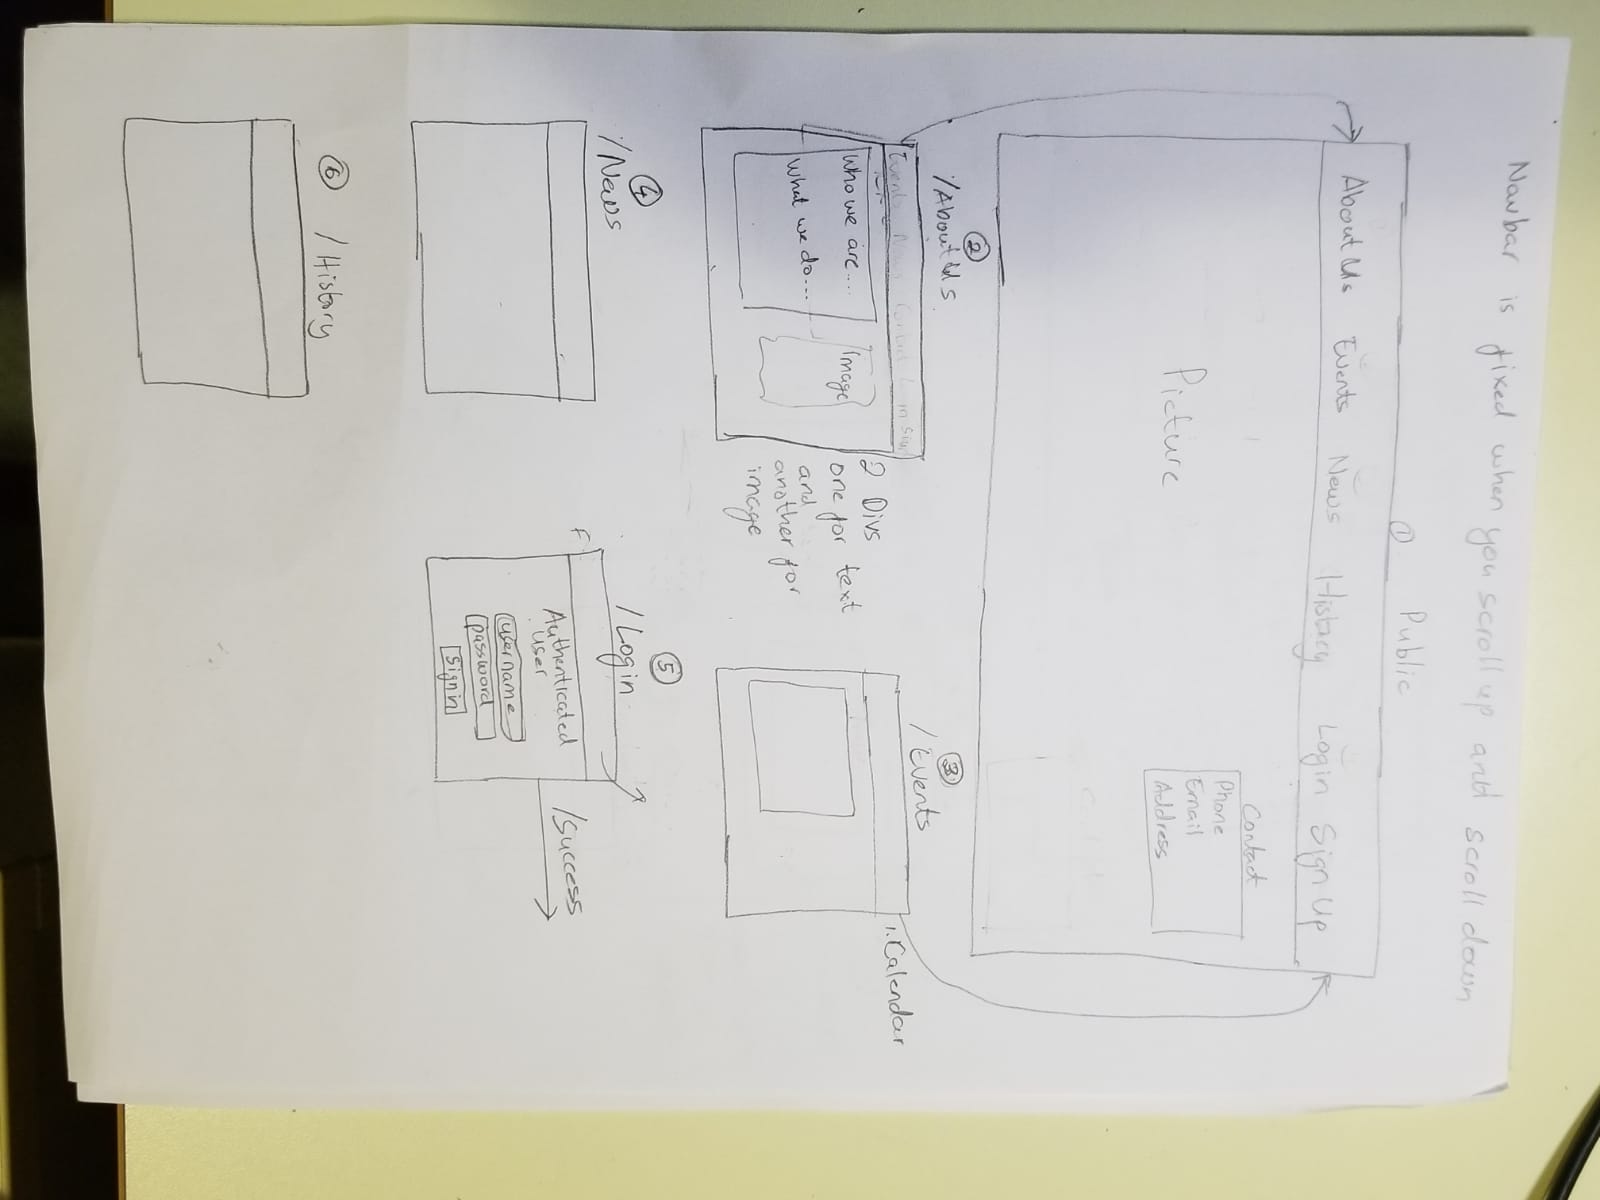 Navbar is fixed when you scroll up and scroll down
① Public
About Us Events News History Login Sign Up
Contact
Phone
Email
Address
Picture
②
/About Us
Events News Contact
Who we are....
What we do...
image
2 Divs
one for text
and
another for
image
③
/Events
1. Calendar
④
/News
⑤
/Login
F
Authenticated
user
username
password
Sign in
/Success
⑥ /History